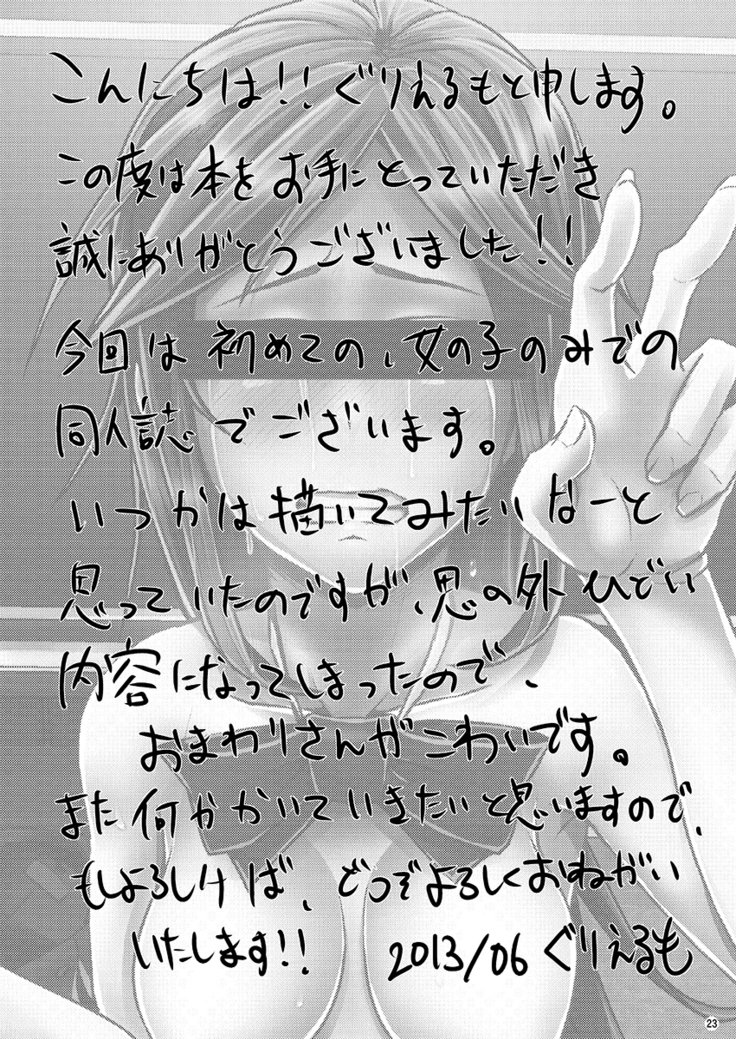 こんにちは!!ぐりえるもと申します。
この度は本をお手にとっていただき
誠にありがとうございました!!
今回は初めての、女の子のみでの
同人誌でございます。
いつかは描いてみたいなーと
思っていたのですが、思の外ひどい
内容になってしまったので、
おまわりさんがこわいです。
また何かかいていきたいと思いますので、
もしよろしければ、どうぞよろしくおねがい
いたします!!
2013/06 ぐりえるも
23